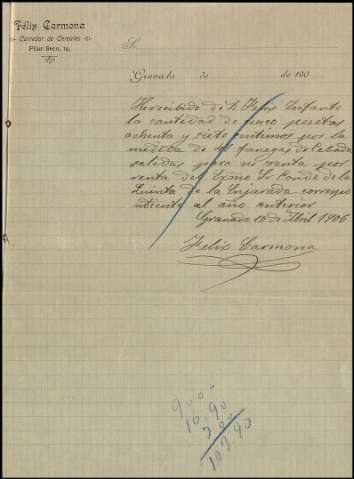 Félix Carmona
Corredor de Cereales
Pilar Seco, 14.
S.
Granada de de 190
He recibido de D. Felix Infante
la cantidad de cinco pesetas
ochenta y siete centimos por la
medida de fanegas de Cebada
salidas para su venta por
renta del Exmo Sr Conde de la
Quinta de la Enjarada correspo
ndiente al año anterior
Granada 10 de Abril 1906
Felix Carmona
90 00
10.90
3 00
103 90